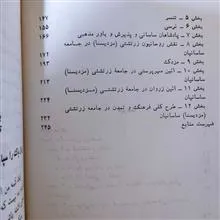 بخش ۵ - تنسر ۱۴۷
بخش ۶ - نرسی ۱۵۵
بخش ۷ - پادشاهان ساسانی و پذیرش و باور مذهبی ۱۶۶
بخش ۸ - نقش روحانیون زرتشتی (مزدیسنا) در جامعه
ساسانیان
بخش ۹ - مزدک ۱۹۳
بخش ۱۰ - آئین مهرپرستی در جامعهٔ زرتشتی (مزدیسنا)
ساسانیان
بخش ۱۱ - آئین زروان در جامعهٔ زرتشتی (مزدیسنا)
ساسانیان
بخش ۱۲ - طرح کلی فرهنگ و تمدن در جامعه زرتشتی
(مزدیسنا) ساسانیان ۲۳۲
فهرست منابع ۲۴۵